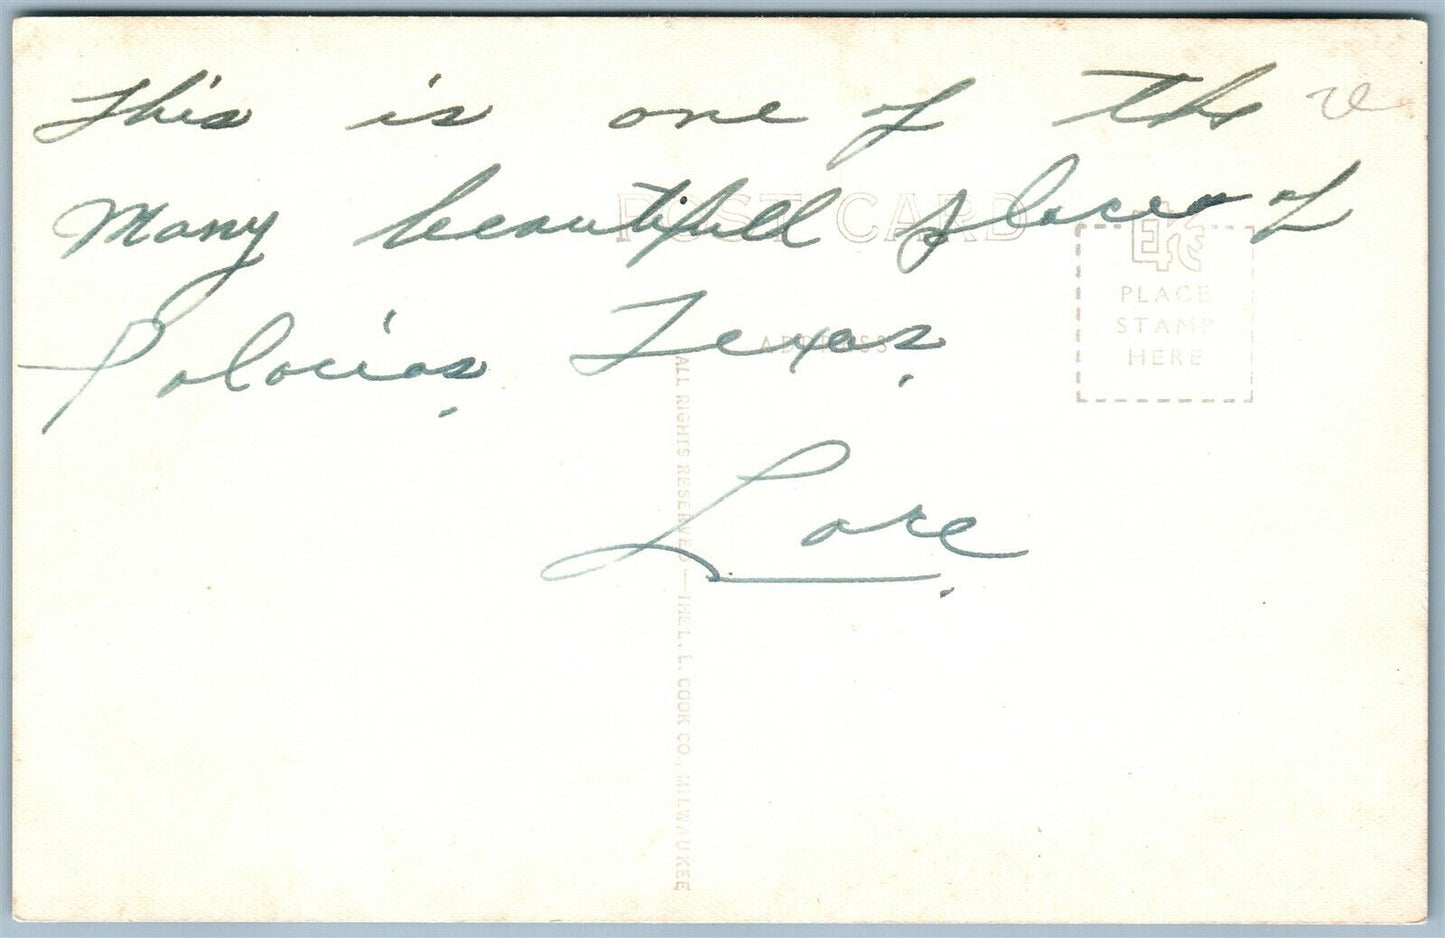 This is one of the
Many beautifull places of
Palacios, Texas.
POST CARD
ADDRESS
PLACE
STAMP
HERE
EKC
ALL RIGHTS RESERVED — THE L. L. COOK CO., MILWAUKEE